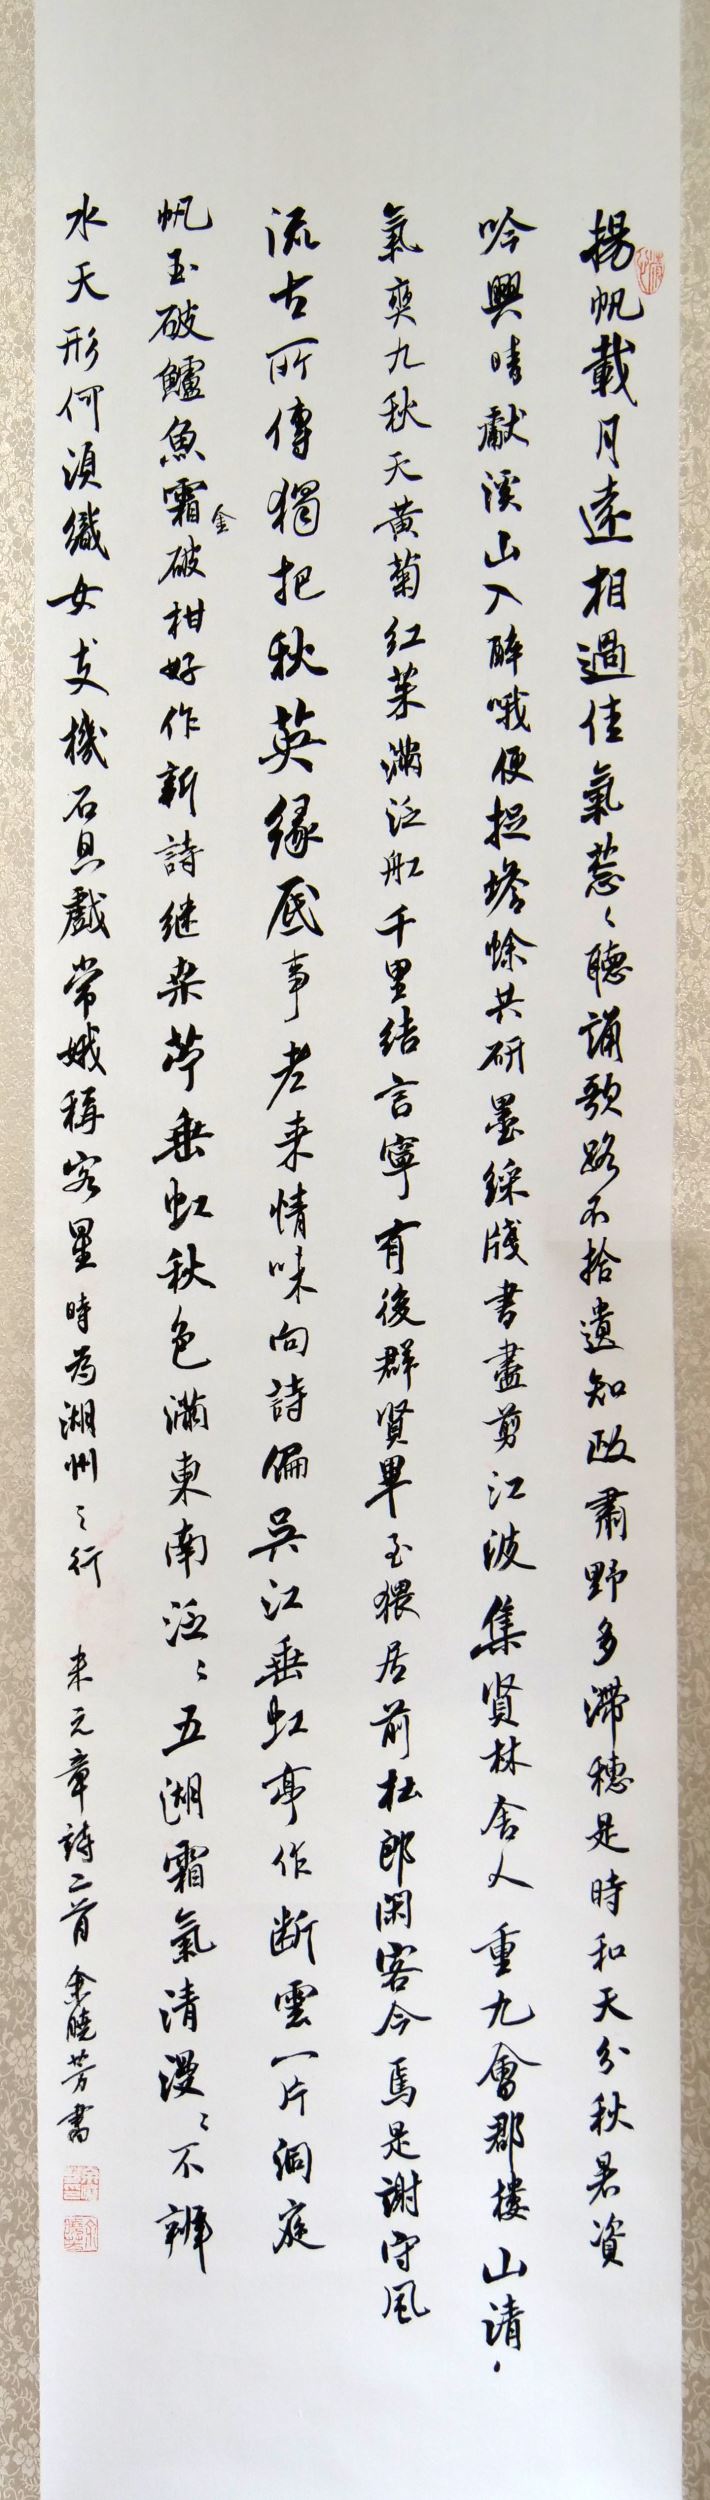 揚帆載月遠相過佳氣葱〻聽誦歌路不拾遺知政肅野多滯穗是時和天分秋暑資
吟興晴獻溪山入醉哦便捉蟾蜍共研墨綵牋書盡剪江波集賢林舍人重九會郡樓山清
氣爽九秋天黄菊紅茱滿泛舡千里結言寧有後群賢畢至猥居前杜郎閑客今焉是謝守風
流古所傳獨把秋英緣底事老来情味向詩偏吳江垂虹亭作断雲一片洞庭
帆玉破鱸魚霜破柑好作新詩继桑苧垂虹秋色滿東南泛〻五湖霜氣清漫〻不辨
金
水天形何須織女支機石且戲常娥稱客星時為湖州之行
米元章詩二首余曉芳書